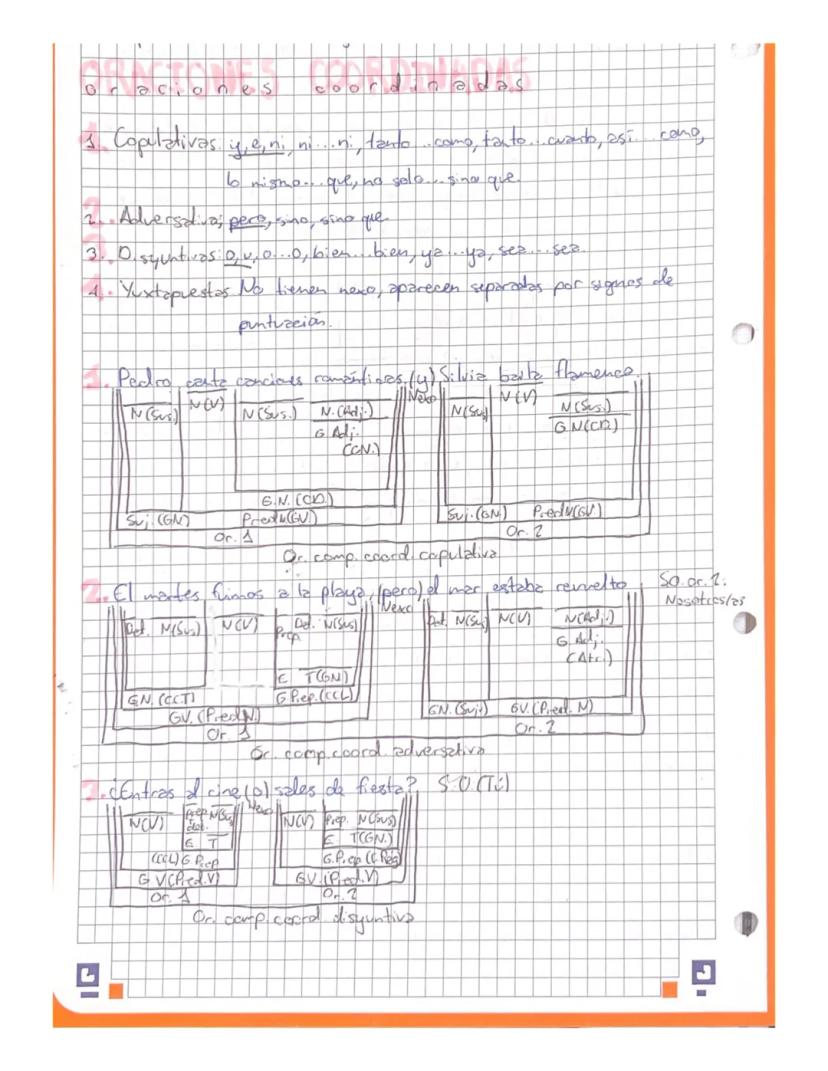 ORACIONES COORDINADAS
oraciones coordinadas
1. Copulativas: y, e, ni, ni...ni, tanto...como, tanto...cuanto, así...como,
lo mismo...que, no solo...sino que
2. Adversativa: pero, sino, sino que
3. Disyuntivas: o, u, o...o, bien...bien, ya...ya, sea...sea.
4. Yuxtapuestas No tienen nexo, aparecen separadas por signos de
puntuación.
1. Pedro canta canciones románticas (y) Silvia baila flamenco.
N(Sus) N(V) N(Sus.) N.(Adj.) Nexo N(Sus) N(V) N(Sus.)
G.Adj. G.N(CD.)
(CN.)
G.N.(CD.)
Suj.(GN) PredV(GV) Suj.(GN) PredV(GV)
Or. 1 Or. 2
Or. comp. coord. copulativa
2. El martes fuimos a la playa, (pero) el mar estaba revuelto SO or. 1:
Nexo Nosotros/as
Det. N(Sus) N(V) Prep Det. N(Sus) Det. N(Sus) N(V) N(Adj.)
G.Adj.
(Atr.)
E T(GN)
GN.(CCT) G.Prep.(CCL) GN.(Suj.) GV.(Pred. N)
GV.(Pred.N.)
Or. 1 Or. 2
Or. comp. coord. adversativa
3. ¿Entras al cine (o) sales de fiesta? S.O.(Tú)
N(V) Prep N(Sus) Nexo N(V) Prep. N(Sus)
det.
E T E T(GN.)
(CCL) G.Prep G.Prep (C.Rég)
GV(Pred.V) GV.(Pred.V)
Or. 1 Or. 2
Or. comp. coord. disyuntiva